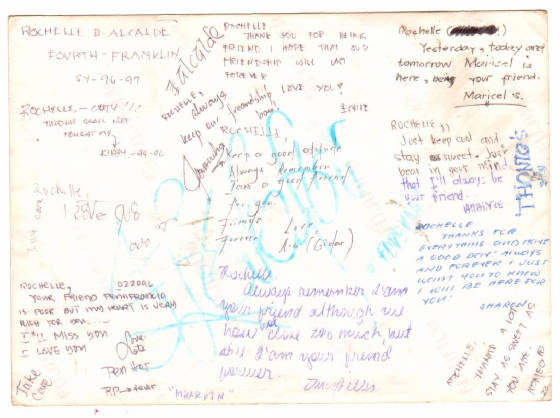 ROCHELLE B. ALCALDE
FOURTH - FRANKLIN
SY-96-97
ROCHELLE
THANK YOU FOR BEING
FRIEND. I HOPE THAT OUR
FRIENDSHIP WILL LAST
FOREVER
LOVE YOU!
Alcalde
ROCHELLE,
always
keep our friendship
Rochelle
Yesterday, today and
tomorrow Maricel is
here, being your friend.
Maricel S.
ROCHELLE
THOU SHALL NOT
FORGET ME
ROCHELLE,
Keep a good attitude
Always Remember
I am a good friend
for you.
Friends
Forever
Love,
ROCHELLE,
Just keep cool and
stay so sweet. Just
bear in your mind,
that I'll always be
your friend.
Rochelle,
I love you
ROCHELLE
THANKS FOR
EVERYTHING AND HAVE
A GOOD DAY! ALWAYS
AND FOREVER I JUST
WANT YOU TO KNOW
I WILL BE HERE FOR
YOU!
SHARON
ROCHELLE, 022096
YOUR FRIEND PENAFRANCIA
IS POOR BUT MY HEART IS VERY
RICH FOR YOU.....
I'll MISS YOU
I LOVE YOU
Take
Care
Rochelle,
Always remember I am
your friend although we
have not close too much, but
still I am your friend
forever.
"MHARVIN"
ROCHELLE,
THANKS A LOT
STAY AS SWEET AS
YOU ARE